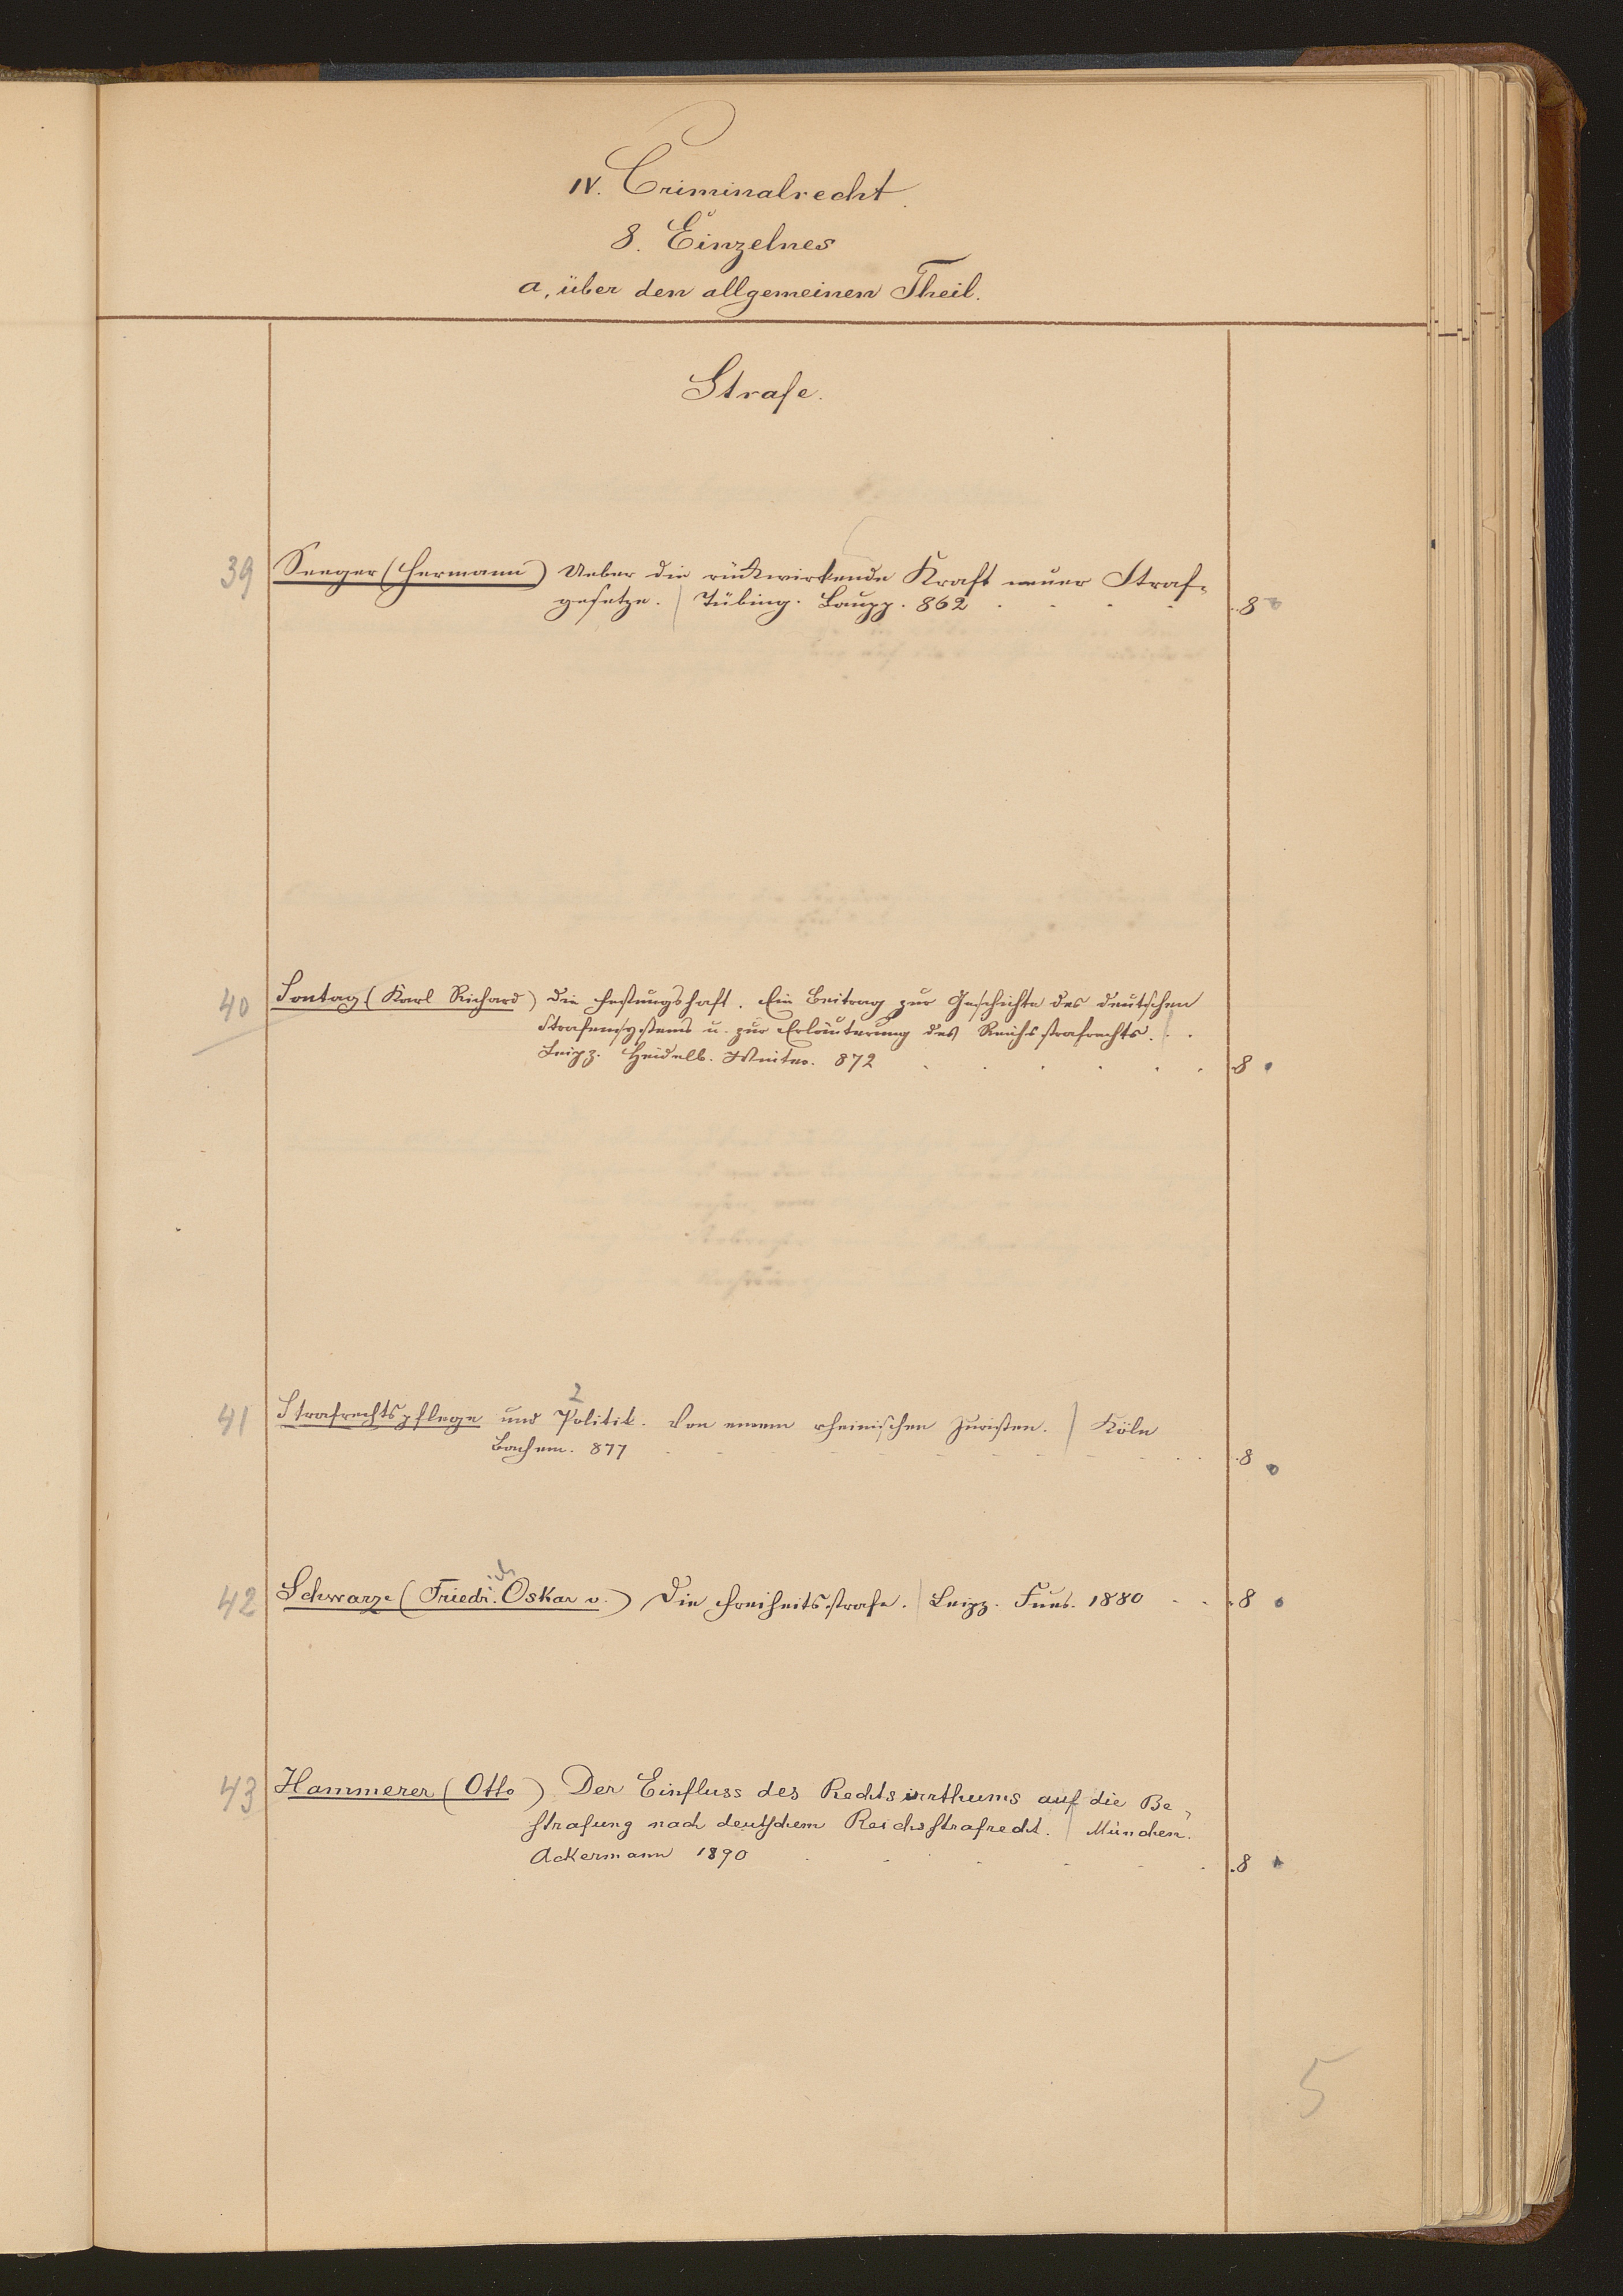 IV. Criminalrecht.
8. Einzelnes
a, über den allgemeinen Theil.
Strafe.
39 Seeger (Hermann) Ueber die rückwirkende Kraft neuer Straf-
gesetze. | Tübing. Laupp. 862 . . . . 8
40 Sontag (Karl Richard) Die Festungshaft. Ein Beitrag zur Geschichte des deutschen
Strafensystems u. zur Erläuterung des Reichsstrafrechts. | . .
Leipz. Heidelb. Winter. 872 . . . . . . 8
41 Strafrechtspflege und Politik. Von einem rheinischen Juristen. | Köln
2
Bachem. 877 . . . . . . . . 8
42 Schwarze (Friedr. Oskar v.) Die Freiheitsstrafe. | Leipz. Fues. 1880 . . . 8
ich
43 Hammerer (Otto) Der Einfluss des Rechtsirrthums auf die Be-
strafung nach deutschem Reichsstrafrecht. | München.
Ackermann 1890 . . . . . . 8
5